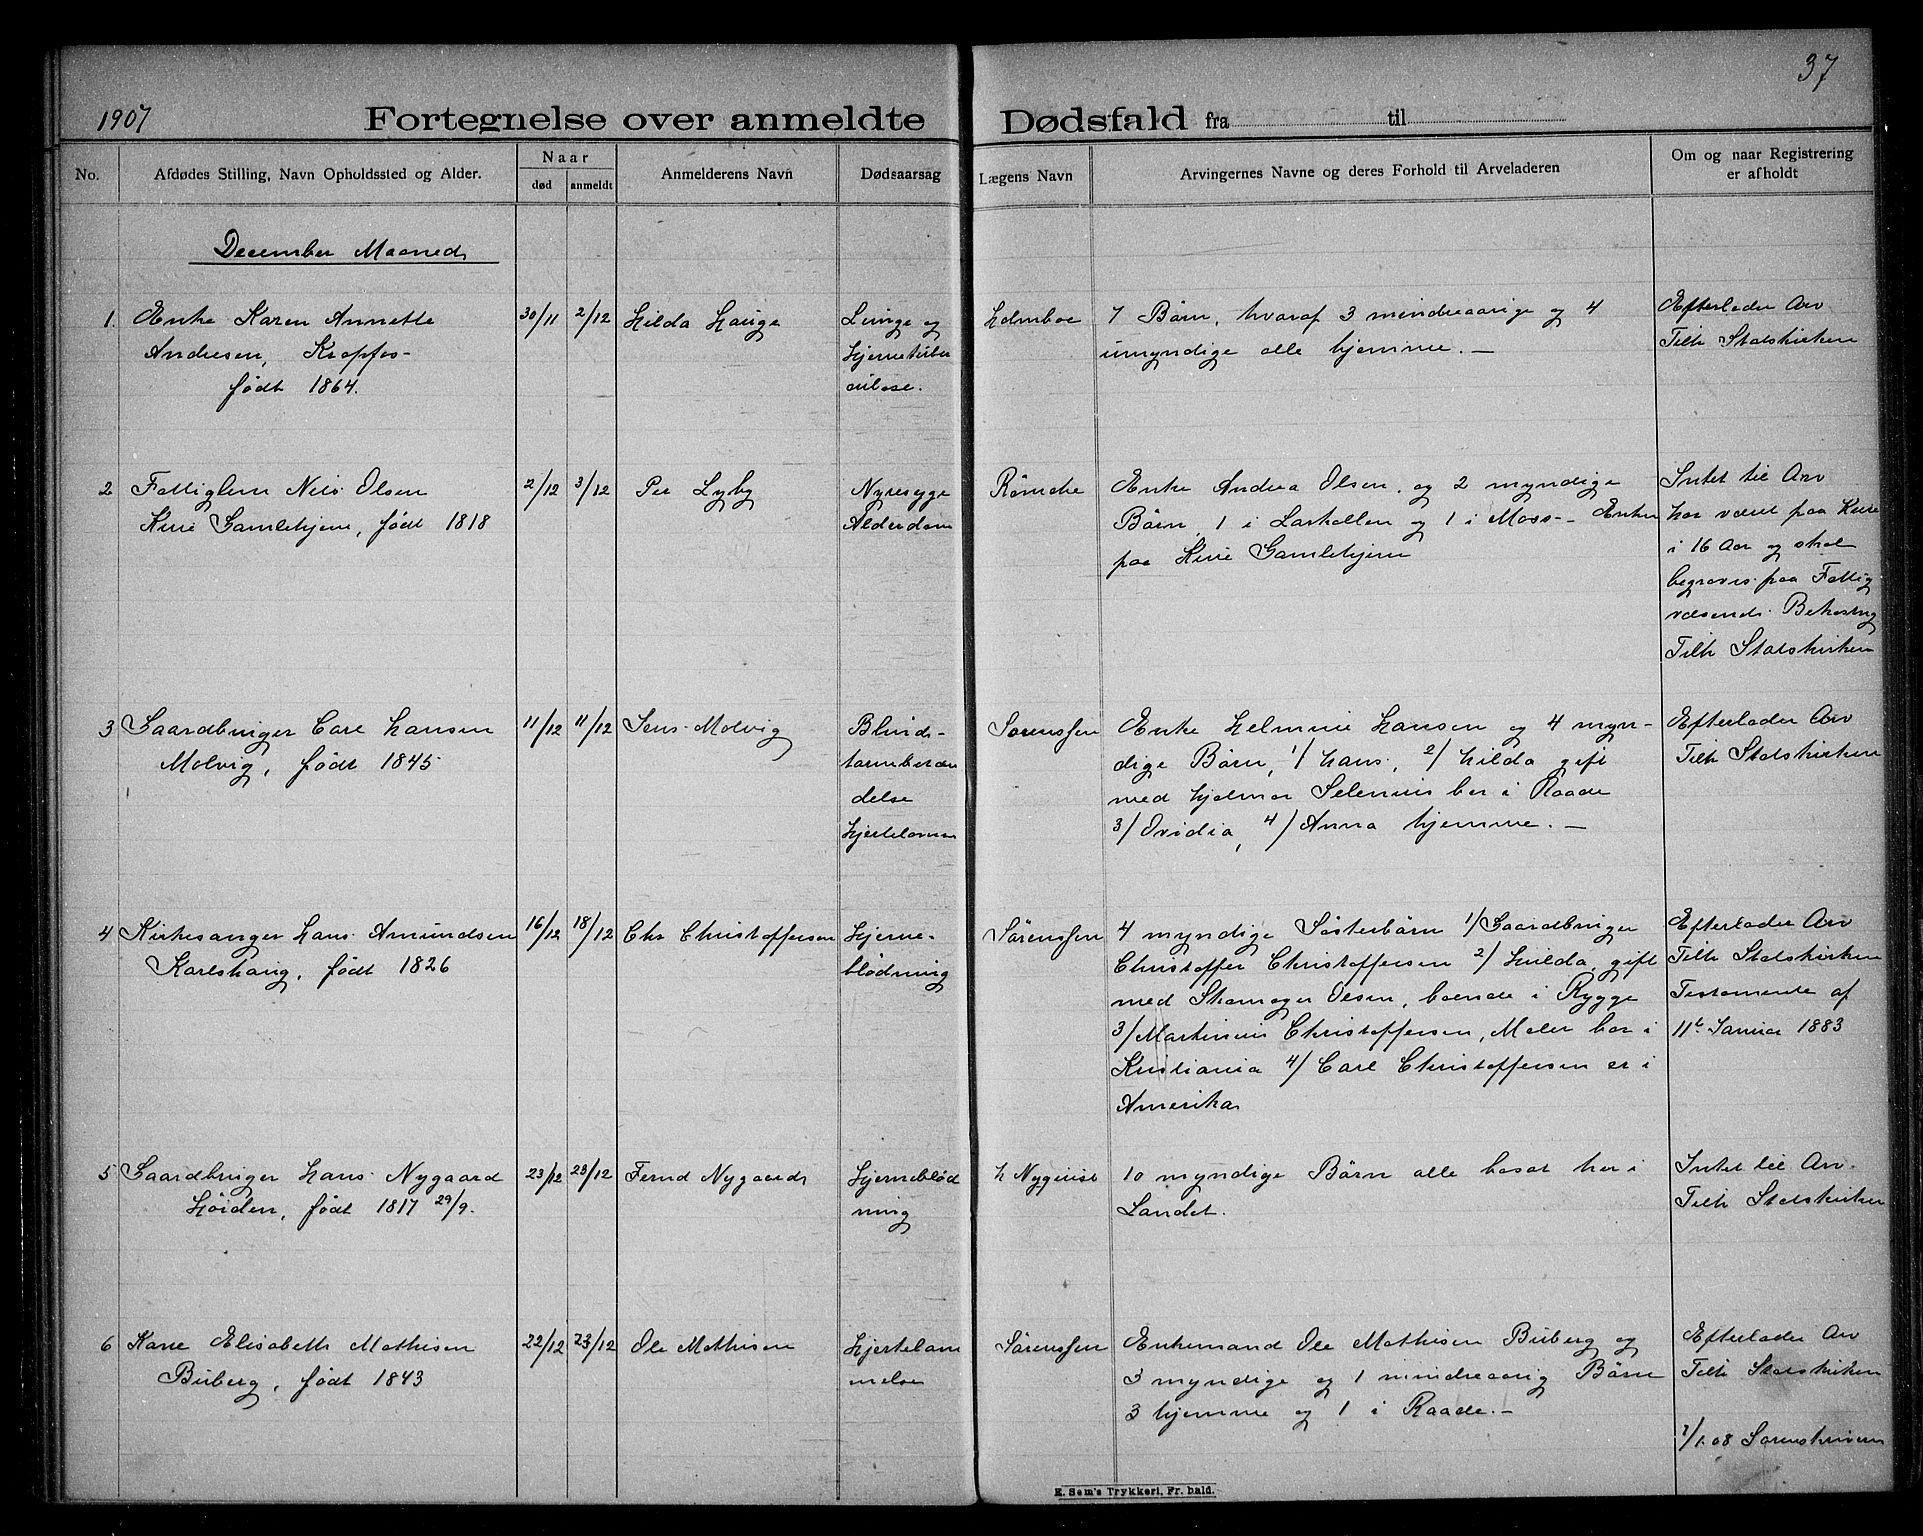 37
1907
Fortegnelse over anmeldte Dødsfald fra til
No.
Afdødes Stilling, Navn Opholdssted og Alder.
Naar
død
anmeldt
Anmelderens Navn
Dødsaarsag
Lægens Navn
Arvingernes Navne og deres Forhold til Arveladeren
Om og naar Registrering
er afholdt
December Maaned
1. Enke Karen Annette
Andresen, Kropfos-
født 1864.
30/11
2/12
Hilda Hauge
Lunge og
Hjernetuber
culose.
Holmboe
7 Børn, hvoraf 3 mindreaarige og 4
umyndige alle hjemme. —
Efterlader Arv
Tilh Statskirken
2 Fattiglem Nils Olsen
Kure Gamlehjem, født 1818
2/12
3/12
Per Lyby
Nyresyge
Alderdom
Rømcke
Enke Andrea Olsen, og 2 myndige
Børn, 1 i Larkollen og 1 i Moss - Enken
paa Kure Gamlehjem
Intet til Arv
har været paa Kure
i 16 Aar og skal
begraves paa Fattig
væsends Bekostng
Tilh Statskirken
3 Gaardbruger Carl Hansen
Molvig, født 1845
11/12
11/12
Jens Molvig
Blind-
tarmbetæn
delse
Hjertelamm
Sørenssen
Enke Helmine Hansen og 4 myn-
dige Børn, 1/ Hans, 2/ Hilda gift
med Hjalmar Selenius bor i Raade
3/ Ovidia, 4/ Anna hjemme. —
Efterlader Arv
Tilh Statskirken
4 Kirkesanger Hans Amundsen
Karlshaug, født 1826
16/12
18/12
Chr Christoffersen
Hjerne-
blødning
Sørenssen
4 myndige Søsterbørn 1/ Gaardbruger
Christoffer Christoffersen 2/ Hulda, gift
med Skomager Olsen, boende i Rygge
3/ Martinius Christoffersen, Maler bor i
Kristiania 4/ Carl Christoffersen er i
Amerika
Efterlader Arv
Tilh Statskirken
Testamente af
11t Januar 1883
5 Gaardbruger Hans Nygaard
Høiden, født 1817 29/9.
23/12
23/12
Fernd Nygaard
Hjerneblød
ning
H Nyquist
10 myndige Børn alle bosat her i
Landet.
Intet til Arv.
Tilh Statskirken
6 Kone Elisabeth Mathisen
Buberg, født 1843
22/12
23/12
Ole Mathisen
Hjertelam
melse
Sørenssen
Enkemand Ole Mathisen Buberg og
3 myndige og 1 mindreaarig Børn
3 hjemme og 1 i Raade. —
Efterlader Arv
Tilh Statskirken
7/1.08 Sorenskriveren
E. Sem's Trykkeri, Fr. hald.